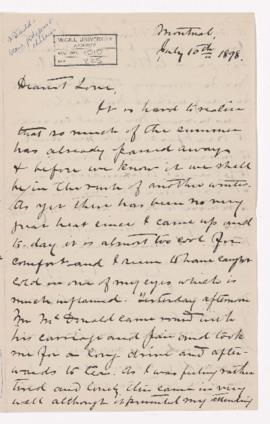 McGILL UNIVERSITY
ARCHIVES
ACC. NO. 1010
REF.
Montreal,
July 10th 1898.
Dearest Love,
It is hard to realize
that so much of the summer
has already passed away
& before we know it we shall
be in the rush of another winter.
As yet there has been no very
great heat since I came up and
to-day it is almost too cool for
comfort and I seem to have caught
cold in one of my eyes which is
much inflamed. Yesterday afternoon
Mr McDonald came round with
his carriage and pair and took
me for a long drive and after-
wards to tea. As I was feeling rather
tired and lonely this came in very
well although it prevented my attending